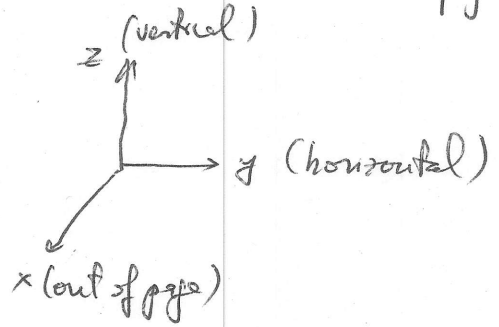 (vertical)
z
y (horizontal)
x (out of page)